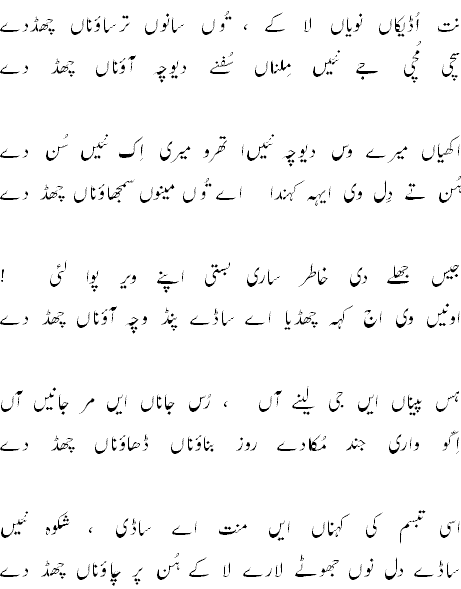 نت اُڈیکاں نویاں لا کے ، تُوں سانوں ترساؤناں چھڈدے
سچی مُچی جے نئیں مِلناں سُفنے دیوچہ آؤناں چھڈ دے
اکھیاں میرے وس دیوچہ نئیں اتھرو میری اِک نئیں سُن دے
ہُن تے دِل وی ایہہ کہندا اے تُوں مینوں سمجھاؤناں چھڈ دے
جیس جھلے دی خاطر ساری بستی اپنے ویر پوا لئی !
اونیں وی اج کہہ چھڈیا اے ساڈے پنڈ وچہ آؤناں چھڈ دے
ہس پیناں ایں جی لینے آں ، رُس جاناں ایں مر جانیں آں
اِکّو واری جند مُکا دے روز بناؤناں ڈھاؤناں چھڈ دے
اسی تبسم کی کہناں ایں منت اے ساڈی ، شکوہ نئیں
ساڈے دل نوں جھوٹے لارے لا کے ہُن پرچاؤناں چھڈ دے